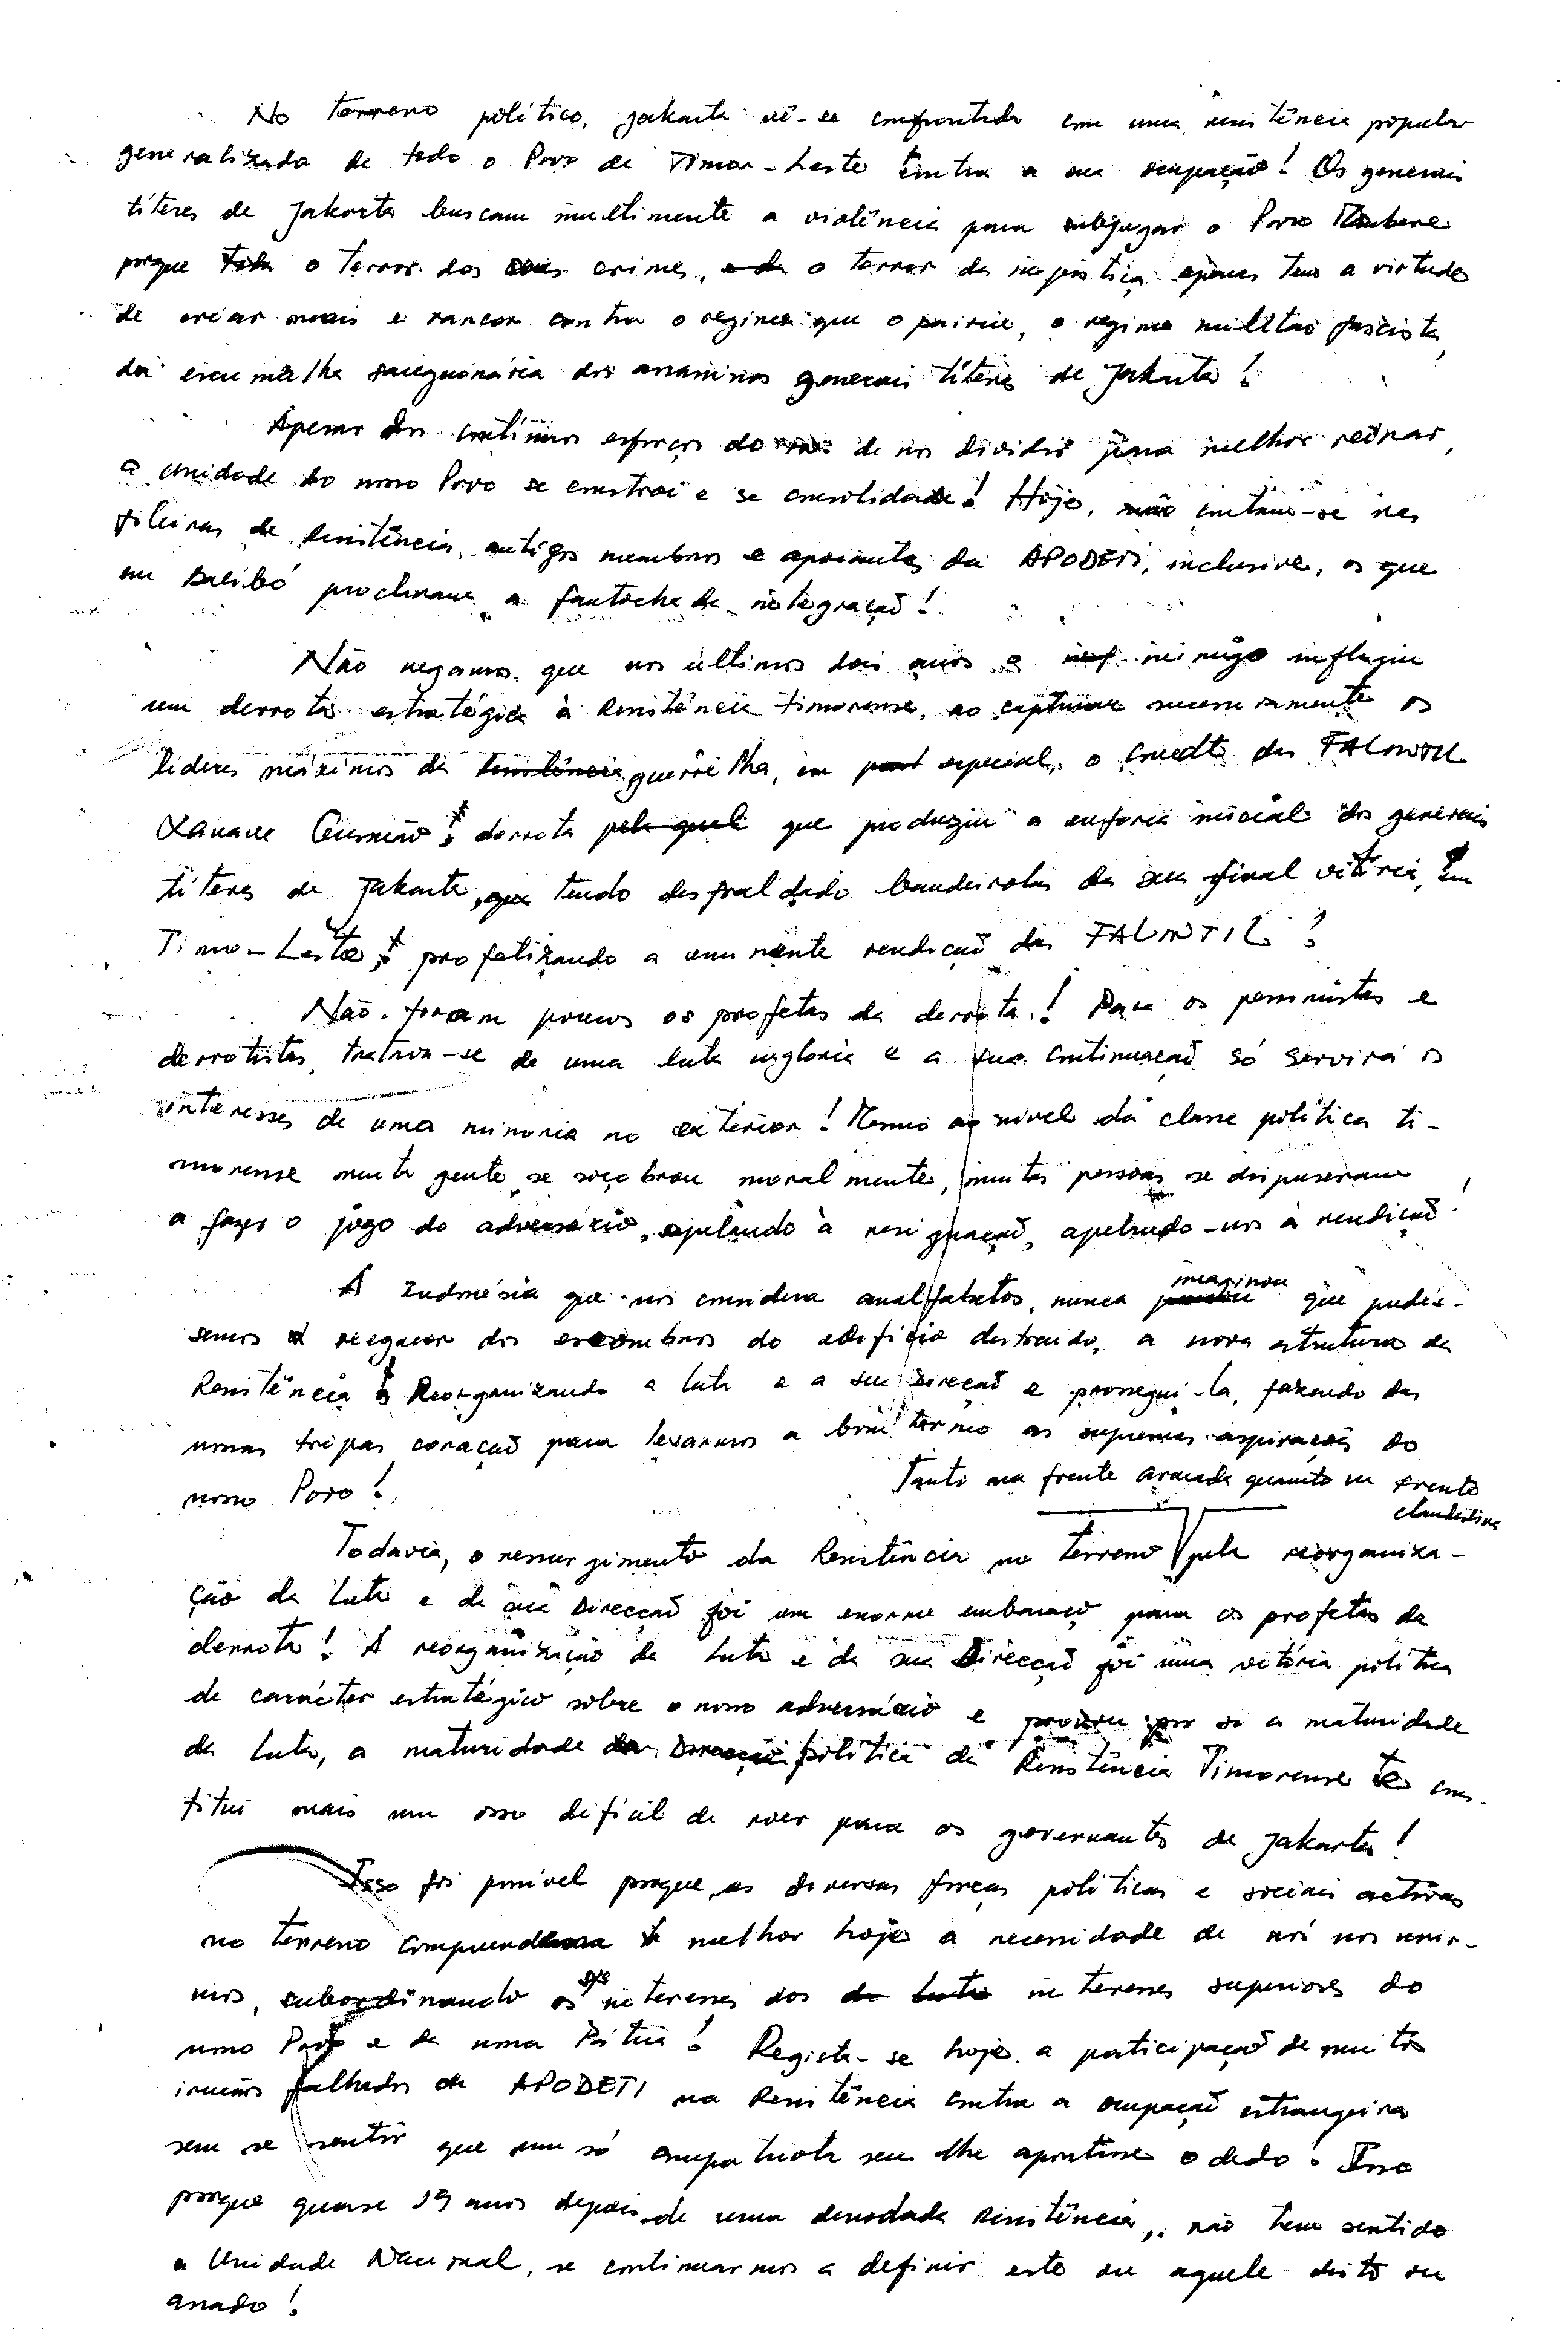 No terreno político, Jakarta vê-se confrontada com uma resistência popular
generalizada de todo o Povo de Timor-Leste contra a sua ocupação! Os generais
títeres de Jakarta buscam inutilmente a violência para subjugar o Povo Maubere
porque o terror dos seus crimes, o terror da injustiça apenas tem a virtude
de criar mais e rancor contra o regime que o pariu, o regime militar fascista,
da escumalha sanguinária dos assassinos generais títeres de Jakarta!
Apesar dos contínuos esforços do de nos dividir para melhor reinar,
a unidade do nosso Povo se constroi e se consolida! Hoje, contam-se nas
fileiras da Resistência, antigos membros e apoiantes da APODETI, inclusive, os que
em Balibó proclamam a fantochada integração!
Não negamos que nos últimos dois anos o inimigo inflingiu
uma derrota estratégica à Resistência timorense, ao capturar sucessivamente os
líderes máximos da guerrilha, em especial, o Cmdte das FALINTIL
Xanana Gusmão; derrota que produziu a euforia inicial dos generais
títeres de Jakarta, tendo desfraldado bandeirolas da sua final vitória, em
Timor-Leste, profetizando a eminente rendição das FALINTIL!
Não foram poucos os profetas da derrota! Para os pessimistas e
derrotistas, tratava-se de uma luta inglória e a sua continuação só servirá os
interesses de uma minoria no exterior! Mesmo ao nível da classe política ti-
morense muita gente se soçobrou moralmente, muitas pessoas se dispuseram
a fazer o jogo do adversário, apelando à resignação, apelando-nos à rendição!
A Indonésia que nos considera analfabetos, nunca imaginou que pudés-
semos reerguer dos escombros do edifício destruido, a nova estrutura da
Resistência! Reorganizando a luta e a sua Direcção e prossegui-la, fazendo das
nossas tripas coração para levarmos a bom termo as supremas aspirações do
nosso Povo!
Tanto na frente armada quanto na frente
clandestina
Todavia, o ressurgimento da Resistência no terreno pela reorganiza-
ção da Luta e da sua Direcção foi um enorme embaraço para os profetas da
derrota! A reorganização da Luta e da sua Direcção foi uma vitória política
de carácter estratégico sobre o nosso adversário e provou por si a maturidade
da Luta, a maturidade política da Resistência Timorense cons-
titui mais um osso difícil de roer para os governantes de Jakarta!
Isso foi possível porque as diversas forças políticas e sociais activas
no terreno compreendem melhor hoje a necessidade de nós nos unir-
mos, subordinando os interesses dos interesses superiores do
nosso Povo e da nossa Pátria! Regista-se hoje a participação de muitos
irmãos falhados da APODETI na Resistência contra a ocupação estrangeira
sem se sentir que um só compatriota seu lhe apontasse o dedo! Isso
porque quase 19 anos depois de uma denodada Resistência, não tem sentido
a Unidade Nacional, se continuarmos a definir este ou aquele disto ou